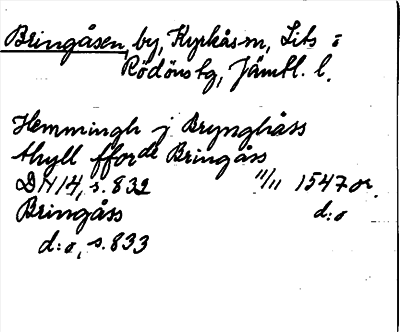 Bringåsen, by, Kyrkås sn, Lits o
Rödöns tg, Jämtl. l.
Hemmingh j Brynghåss
thyll fforde Bringåss
DN 14, s. 832 11/11 1547 or.
Bringåss d:o
d:o, s. 833